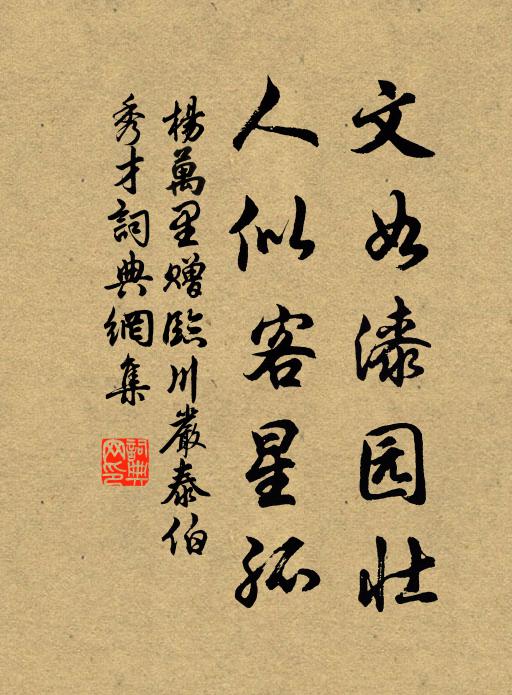 文如漆园壮
人似客星孤
楊萬里贈臨川嚴泰伯
秀才詞典網集
詞典網印